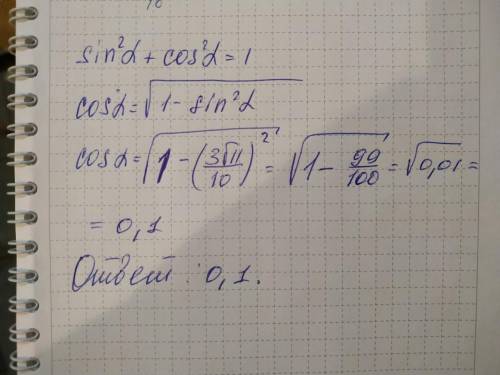 sin²α + cos²α = 1
cosα = √(1 - sin²α)
cosα = √(1 - (3√11/10)²) = √(1 - 99/100) = √0,01 =
= 0,1
Ответ : 0,1.